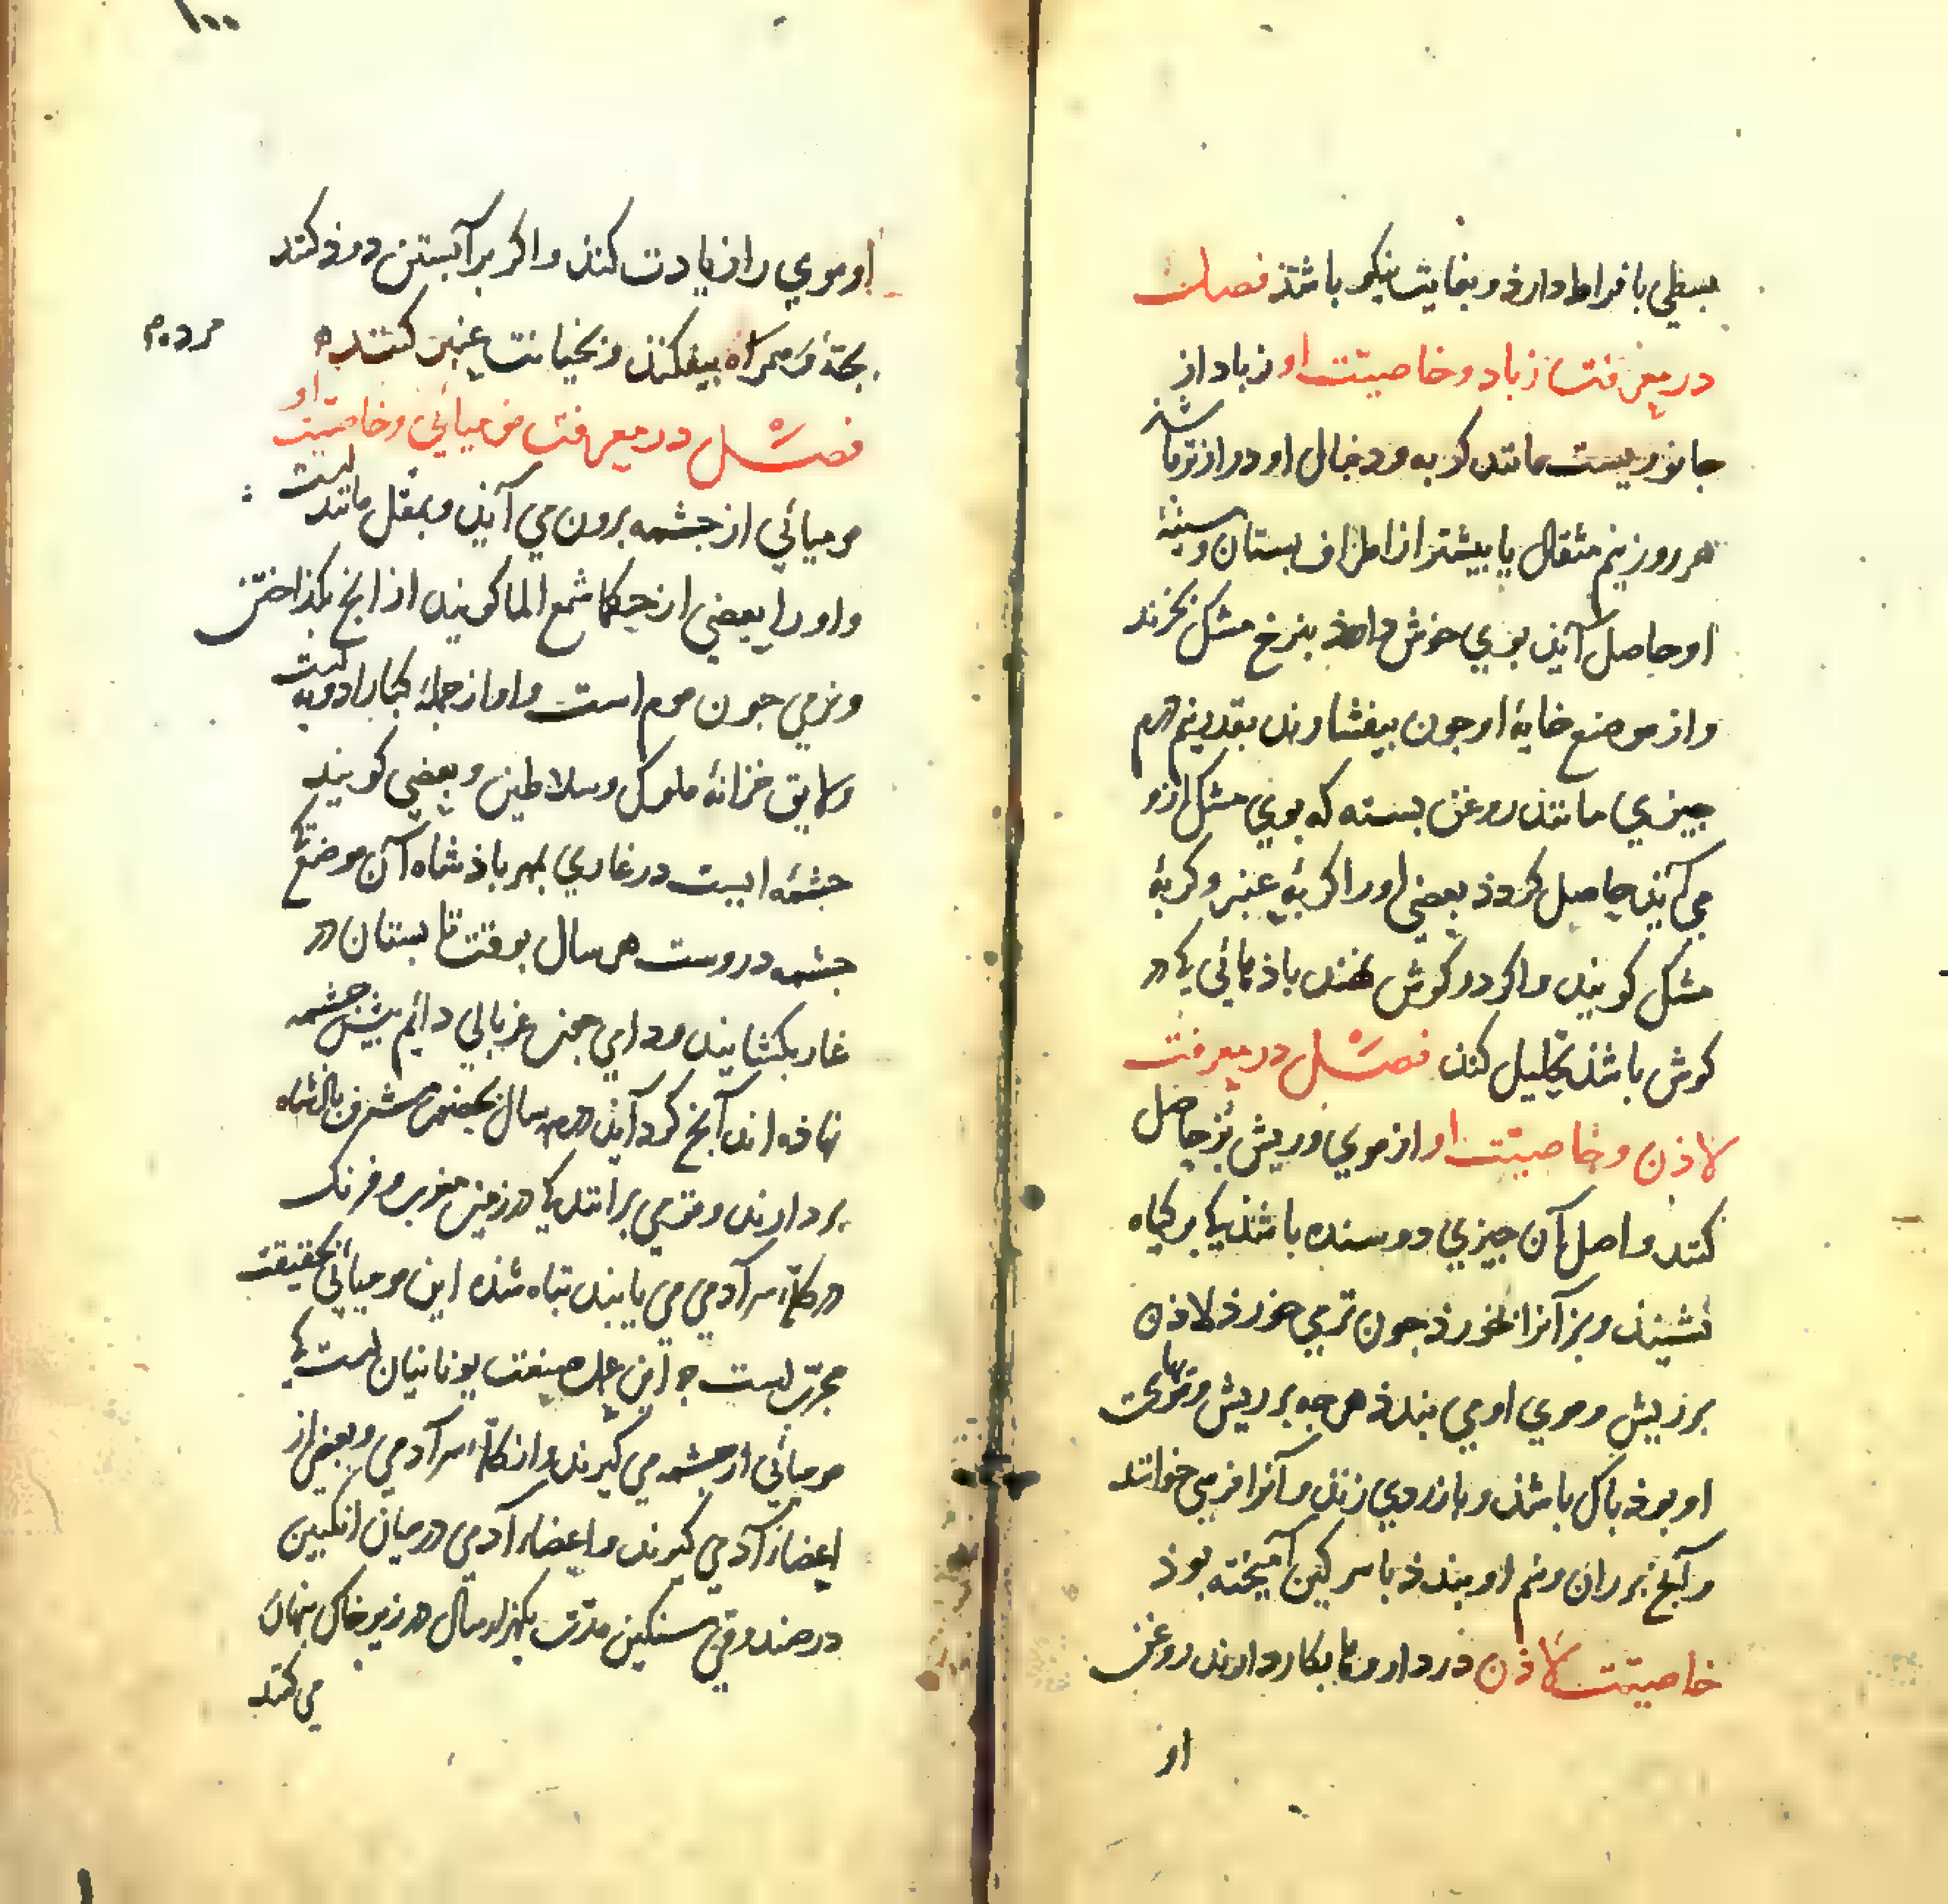 بسطی بافراط دارذ و بغایت نیکو باشذ فصل
در معرفت زباد و خاصیّت او زباد از
جانوریست مانند کربه و دنبال او درازتر باشذ
هر روز نیم مثقال یا بیشتر از اطراف بستان و سینهٔ
او حاصل آیذ بوی خوش دهذ بنرخ مشک بخرند
و از موضع خایهٔ او جون بیفشارند بقدر نیم درم
جیزی مانند روغن بسته که بوی مشک ازو
می آیذ حاصل کردذ بعضی او را کربهٔ عنبر و کربهٔ
مشک کویند و اکر در کوش نهند باذهائی که در
کوش باشذ تحلیل کند فصل در معرفت
لاذن و خاصیّت او از موی و ریش بز حاصل
کنند و اصل آن جیزی دوسنده باشذ که بر کیاه
نشیند و بز آنرا بخورذ جون تری خورذ لاذن
بر ریش و موی او می بندذ هرجه بر ریش و مویهاء
او بوذ باک باشذ و بازروی زنند و آنرا فرمی خوانند
و آنچ بر ران و سم او بندذ با سرکین آمیخته بوذ
خاصیّت لاذن در داروها بکار دارند روغن
او
او موی را زیادت کند و اکر بر آبستن دوذ کنند
بجهٔ مرده بیفکند و بخیانت عنبر کنند
مردم
فصل در معرفت مومیائی و خاصیّت او
مومیائی از جشمه برون می آیذ و بمقل مانند است
و او را بعضی از حکما شمع الما کویند از انج بکذاختن
و نرمی جون موم است و او از جملهٔ کبار ادویه است
و لایق خزانهٔ ملوک و سلاطین و بعضی کویند
جشمهٔ ایست در غاری بهر باذشاه آن موضع که
جشمه دروست هر سال بوقت تابستان در
غار بکشایند و برای جنس غربالی دائم بیش جشمه
نهاذه اند آنج کرد آیذ در هر سال بحضور مشرف باذشاه
بردارند و قومی برانند که در زمین مغرب و فرنک
در کلّهٔ سر آدمی می یابند تباه شذه این مومیائی بحقیقت
مجرّب است جه این عمل صنعت یونانیان است که
مومیائی از جشمه می کیرند و از کلّهٔ سر آدمی و بعضی از
اعضاء آدمی کیرند و اعضاء آدمی در میان انکبین
در صندوقی سنکین مدّت یکهزار سال در زیر خاک بنهان
می کنند
۱۰۰